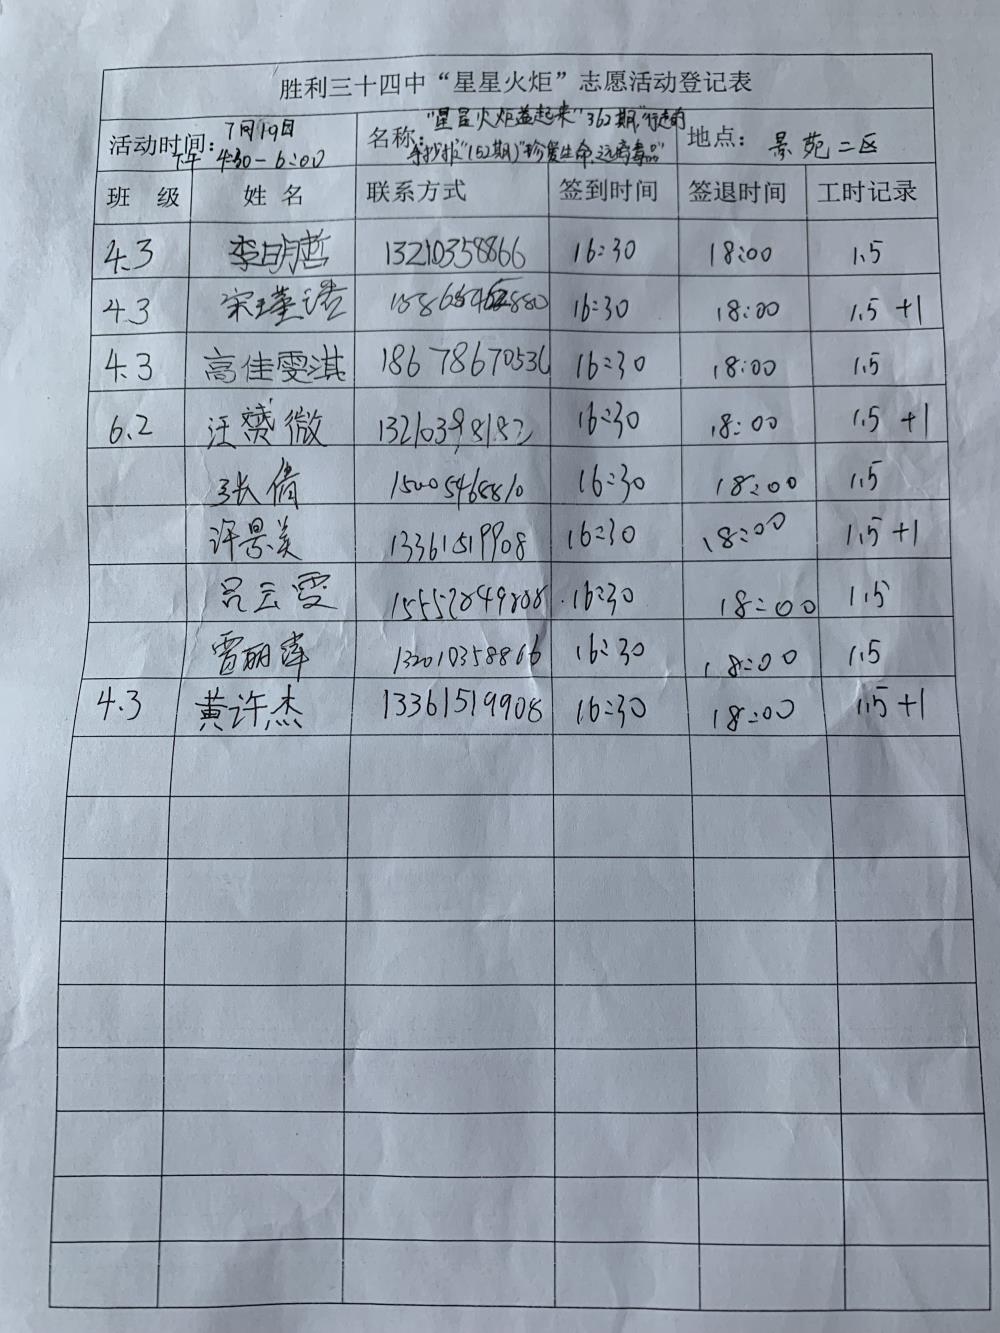 胜利三十四中“星星火炬”志愿活动登记表
活动时间：7月19日 下午 4:30-6:00 名称：“星星火炬益起来”362期，“行走的手抄报”（152期）“珍爱生命，远离毒品” 地点：景苑二区
班 级 姓 名 联系方式 签到时间 签退时间 工时记录
4.3 李明哲 13210358866 16:30 18:00 1.5
4.3 宋瑾浩 16:30 18:00 1.5 +1
4.3 高佳雯淇 18678670536 16:30 18:00 1.5
6.2 汪赟微 16:30 18:00 1.5 +1
张倩 15005468810 16:30 18:00 1.5
许景美 13361519908 16:30 18:00 1.5 +1
吕云雯 16:30 18:00 1.5
贾丽萍 16:30 18:00 1.5
4.3 黄许杰 13361519908 16:30 18:00 1.5 +1